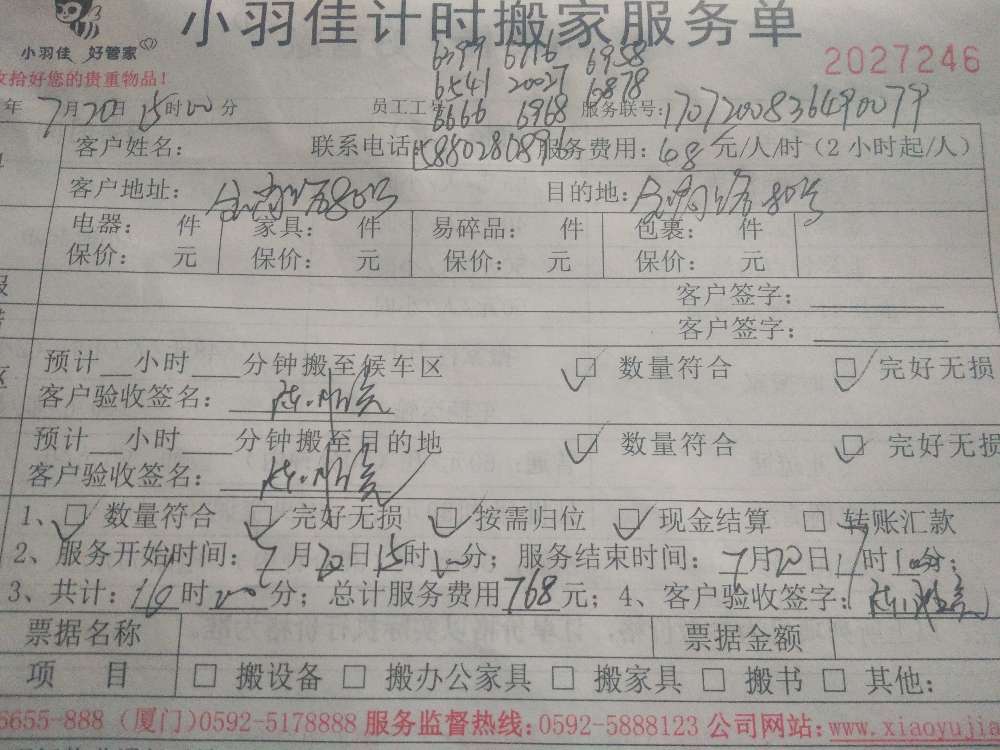 小羽佳计时搬家服务单
小羽佳 好管家
6399 6716 6958
2027246
收拾好您的贵重物品！
6541 20027 6878
年 7月20日 15时00分 员工工号 6666 6968 服务联号: 1707200836490079
客户姓名： 联系电话: 15880280896 服务费用: 68 元/人/时（2小时起/人）
客户地址： 目的地: 
电器： 件 家具： 件 易碎品： 件 包裹： 件
保价： 元 保价： 元 保价： 元 保价： 元
客户签字：
客户签字：
预计 小时 分钟搬至候车区 数量符合 完好无损
客户验收签名：
预计 小时 分钟搬至目的地 数量符合 完好无损
客户验收签名：
1、 数量符合 完好无损 按需归位 现金结算 转账汇款
2、服务开始时间: 7月20日15时00分；服务结束时间: 7月20日17时00分；
3、共计: 16时00分；总计服务费用768元；4、客户验收签字:
票据名称 票据金额
项 目 搬设备 搬办公家具 搬家具 搬书 其他:
6655-888（厦门)0592-5178888 服务监督热线: 0592-5888123 公司网站: www.xiaoyujia